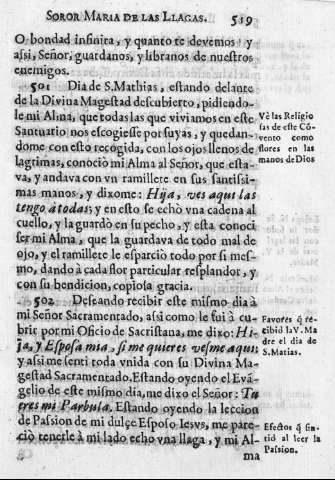 SOROR MARIA DE LAS LLAGAS. 519
O bondad infinita, y quanto te devemos! y
assi, Señor, guardanos, y libranos de nuestros
enemigos.
501 Dia de S. Mathias, estando delante
de la Divina Magestad descubierto, pidiendo-
le mi Alma, que todas las que viviamos en este
Santuario nos escogiesse por suyas, y quedan-
dome con esto recogida, con los ojos llenos de
lagrimas, conociò mi Alma al Señor, que esta-
va, y andava con vn ramillete en sus santissi-
mas manos, y dixome: Hija, ves aqui las
tengo à todas; y en esto se echò vna cadena al
cuello, y la guardò en su pecho, y esta conoci
ser mi Alma, que la guardava de todo mal de
ojo, y el ramillete le esparciò todo por si mes-
mo, dando à cada flor particular resplandor, y
con su bendicion, copiosa gracia.
Vè las Religio
sas de este Cõ
vento como
flores en las
manos de Dios
502 Deseando recibir este mismo dia à
mi Señor Sacramentado, assi como le fui à cu-
brir por mi Oficio de Sacristana, me dixo: Hi-
ja, y Esposa mia, si me quieres vesme aqui:
y assi me senti toda vnida con su Divina Ma-
gestad Sacramentado. Estando oyendo el Evã-
gelio de este mismo dia, me dixo el Señor: Tu
eres mi Parbula. Estando oyendo la leccion
de Passion de mi dulçe Esposo Iesvs, me pare-
ciò tenerle à mi lado echo vna llaga, y mi Al-
ma
Favores q̃ re-
cibiò la V. Ma
dre el dia de
S. Matias.
Efectos q̃ sin-
tiò al leer la
Passion.